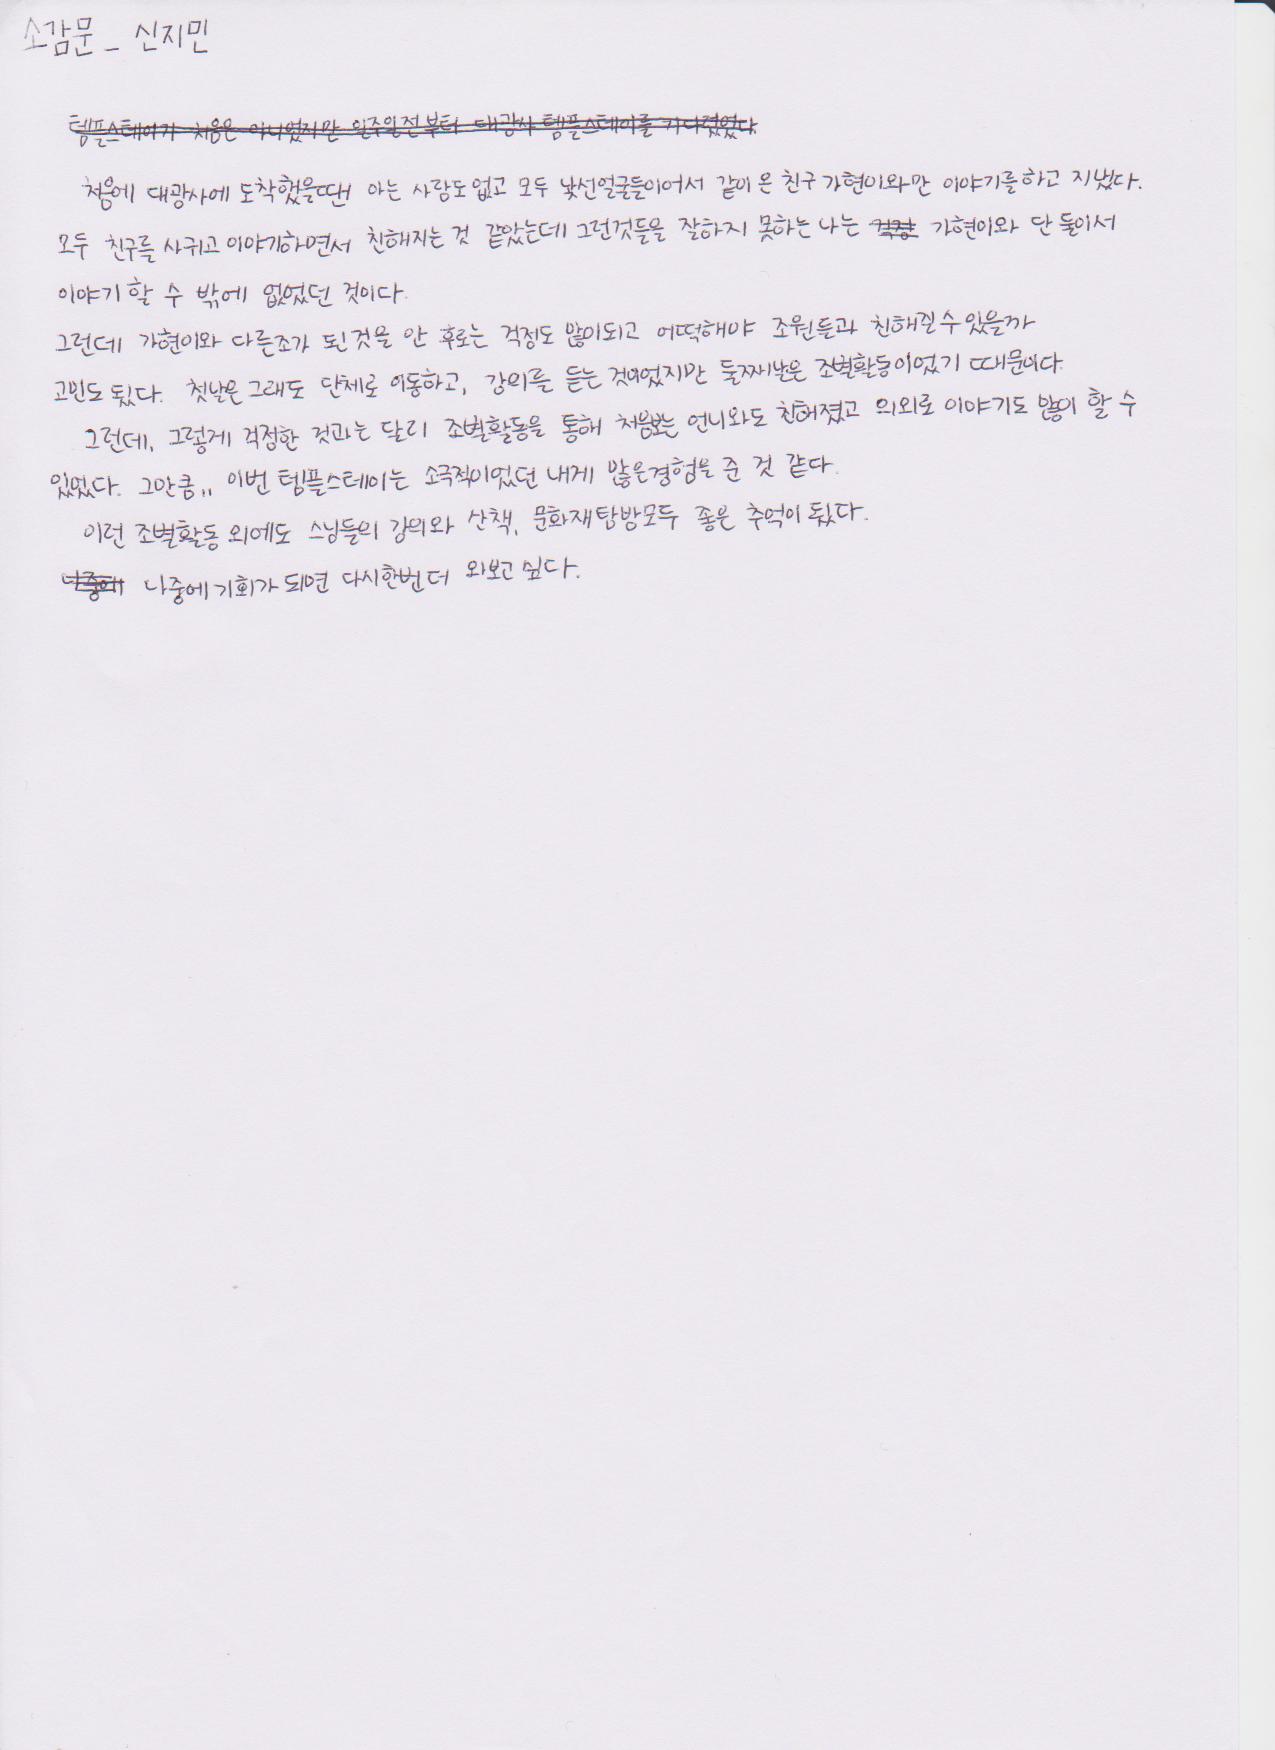 소감문 _ 신지민
템플스테이가 처음은 아니었지만 일주일전부터 대광사 템플스테이를 기다렸었다.
처음에 대광사에 도착했을땐 아는 사람도 없고 모두 낯선얼굴들이어서 같이 온 친구 가현이와만 이야기를 하고 지냈다.
모두 친구를 사귀고 이야기하면서 친해지는 것 같았는데 그런것들을 잘하지 못하는 나는 걱정 가현이와 단 둘이서
이야기 할 수 밖에 없었던 것이다.
그런데 가현이와 다른조가 된 것을 안 후로는 걱정도 많이되고 어떡해야 조원들과 친해질 수 있을까
고민도 됬다. 첫날은 그래도 단체로 이동하고, 강의를 듣는 것이었지만 둘째날은 조별활동이었기 때문이다.
그런데, 그렇게 걱정한 것과는 달리 조별활동을 통해 처음보는 언니와도 친해졌고 의외로 이야기도 많이 할 수
있었다. 그만큼,, 이번 템플스테이는 소극적이었던 내게 많은경험을 준 것 같다.
이런 조별활동 외에도 스님들의 강의와 산책, 문화재탐방모두 좋은 추억이 됬다.
나중에 나중에 기회가 되면 다시한번더 와보고 싶다.